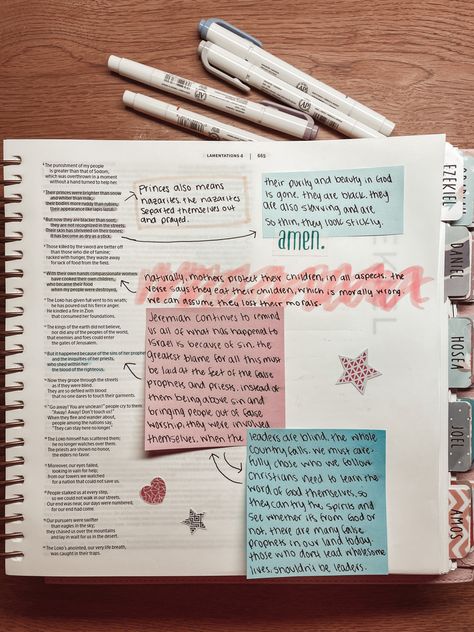 LAMENTATIONS 4 | 665
6 The punishment of my people
is greater than that of Sodom,
which was overthrown in a moment
without a hand turned to help her.
7 Their princes were brighter than snow
and whiter than milk,
their bodies more ruddy than rubies,
their appearance like lapis lazuli.
8 But now they are blacker than soot;
they are not recognized in the streets.
Their skin has shriveled on their bones;
it has become as dry as a stick.
9 Those killed by the sword are better off
than those who die of famine;
racked with hunger, they waste away
for lack of food from the field.
10 With their own hands compassionate women
have cooked their own children,
who became their food
when my people were destroyed.
11 The LORD has given full vent to his wrath;
he has poured out his fierce anger.
He kindled a fire in Zion
that consumed her foundations.
12 The kings of the earth did not believe,
nor did any of the peoples of the world,
that enemies and foes could enter
the gates of Jerusalem.
13 But it happened because of the sins of her prophets
and the iniquities of her priests,
who shed within her
the blood of the righteous.
14 Now they grope through the streets
as if they were blind.
They are so defiled with blood
that no one dares to touch their garments.
15 "Go away! You are unclean!" people cry to them.
"Away! Away! Don't touch us!"
When they flee and wander about,
people among the nations say,
"They can stay here no longer."
16 The LORD himself has scattered them;
he no longer watches over them.
The priests are shown no honor,
the elders no favor.
17 Moreover, our eyes failed,
looking in vain for help;
from our towers we watched
for a nation that could not save us.
18 People stalked us at every step,
so we could not walk in our streets.
Our end was near, our days were numbered,
for our end had come.
19 Our pursuers were swifter
than eagles in the sky;
they chased us over the mountains
and lay in wait for us in the desert.
20 The LORD's anointed, our very life breath,
was caught in their traps.
Princes also means
nazarites. The nazarites
separted themselves out
and prayed.
their purity and beauty in God
is gone. they are black. they
are also starving and are
so thin, they look stickly.
amen.
naturally, mothers protect their children, in all aspects. the
verse says they eat their children, which is morally wrong.
We can assume they lost their morals.
Jeremiah continues to remind
us all of what has happened to
Israel is because of sin. the
greatest blame for all this must
be laid at the feet of the false
prophets and priests. instead of
them being above sin and
bringing people out of false
worship, they were involved
themselves. when the
leaders are blind, the whole
country falls. we must care-
fully chose who we follow.
Christians need to learn the
word of God themselves, so
they can try the spirits and
see whether its from God or
not. there are many false
prophets in our land today.
those who don't lead wholesome
lives, shouldn't be leaders.
EZEKIEL
DANIEL
HOSEA
JOEL
AMOS